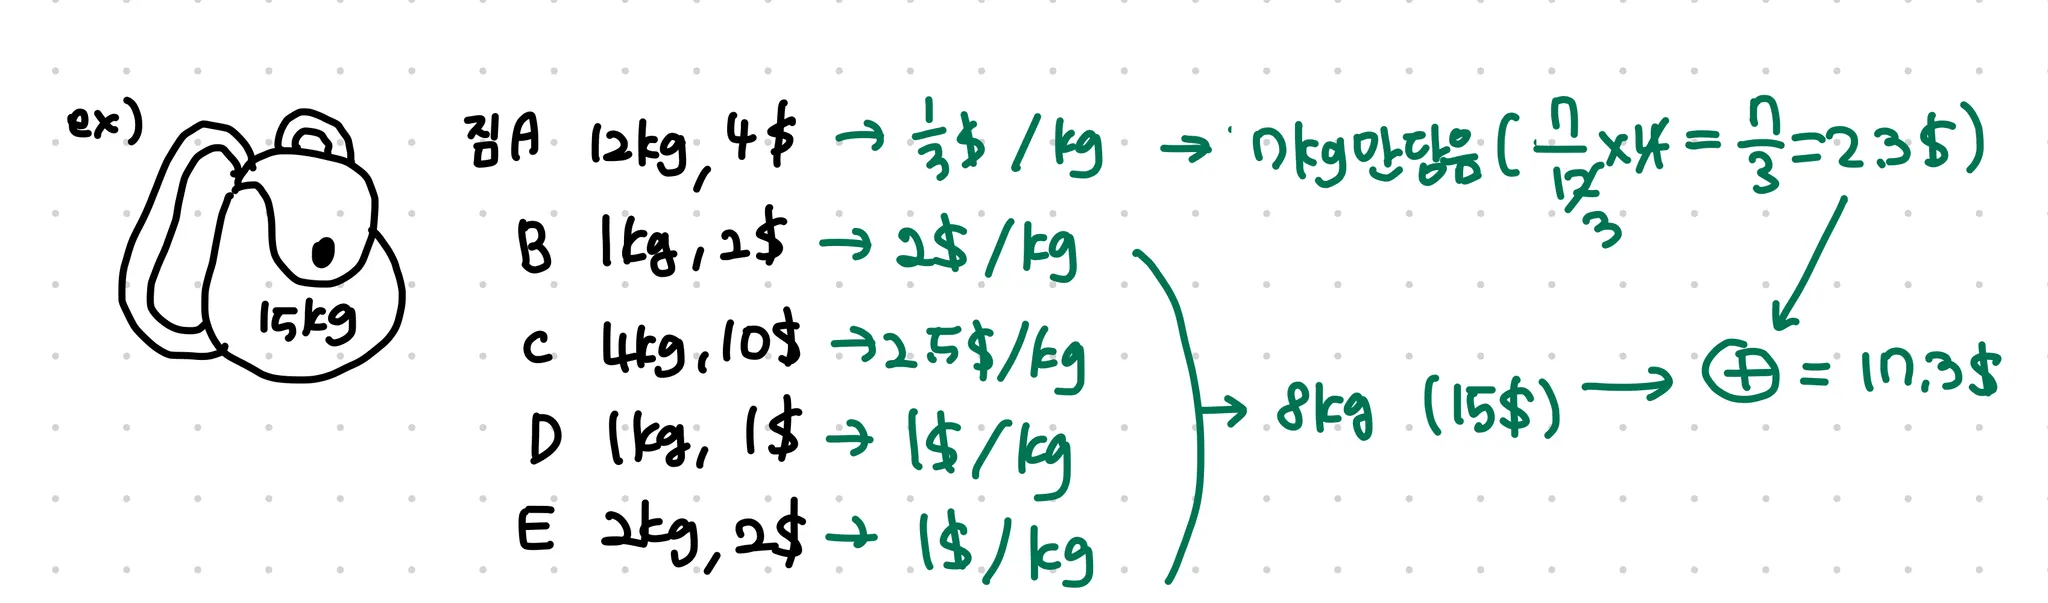 ex)
15kg
짐A 12kg, 4$ → 1/3$ / kg → 7kg만담음 ( 7/12 3 × 4 = 7/3 = 2.3$ )
B 1kg, 2$ → 2$ / kg
C 4kg, 10$ → 2.5$/kg
D 1kg, 1$ → 1$ / kg
E 2kg, 2$ → 1$ / kg
→ 8kg (15$) → ⊕ = 17.3$